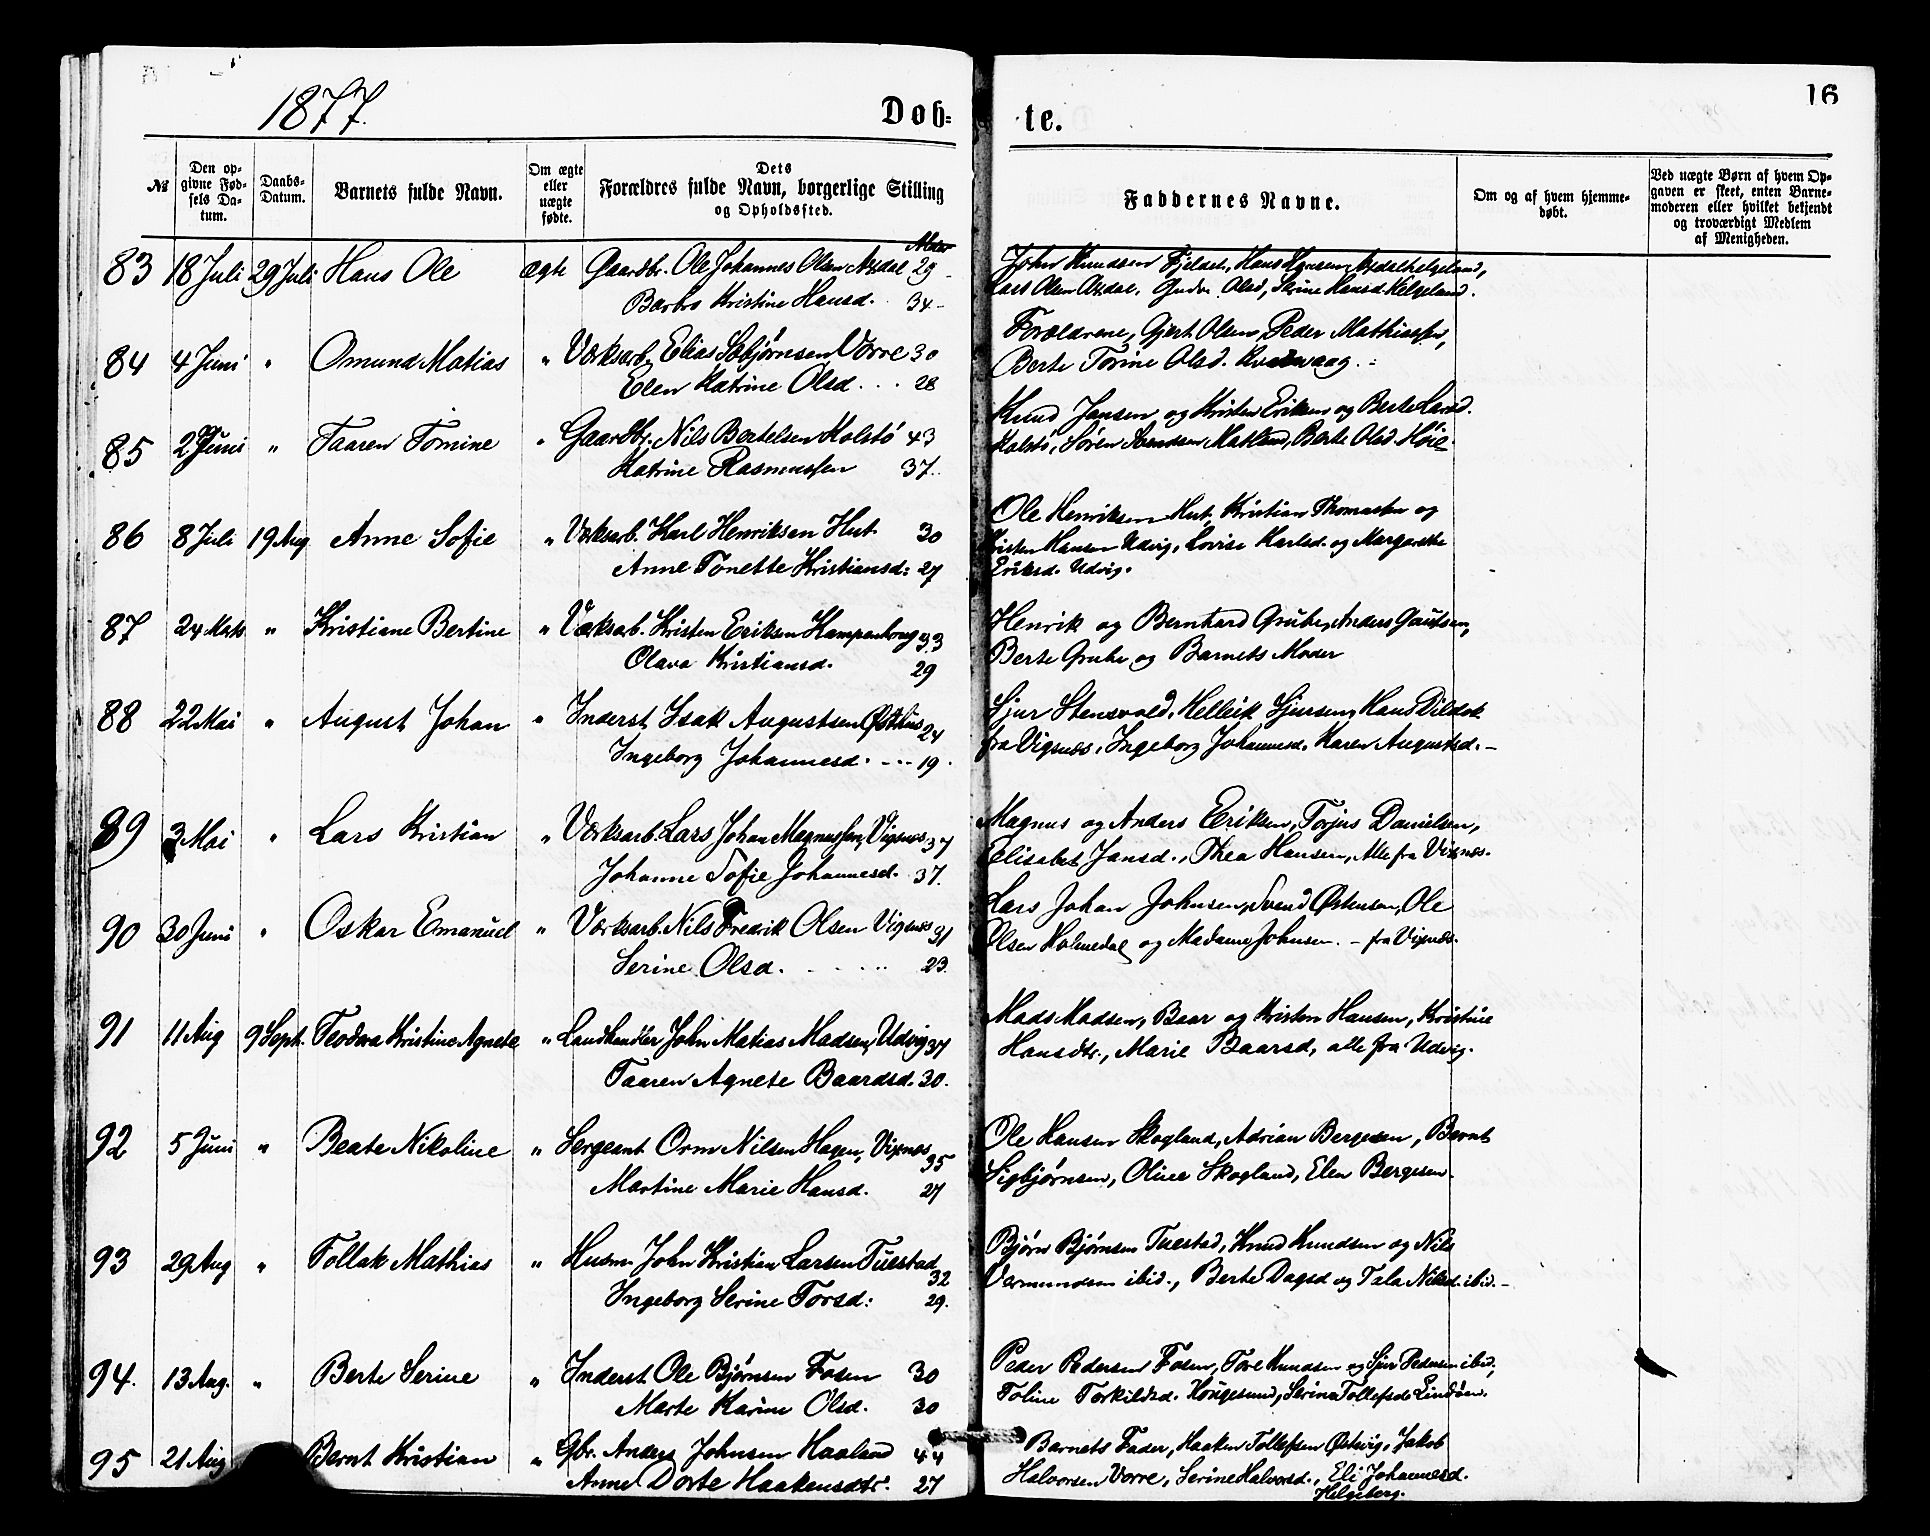 1877.
Døb-
te.
16
№
Den op-
givne Fød-
sels Da-
tum.
Daabs-
Datum.
Barnets fulde Navn.
Om ægte
eller
uægte
fødte.
Dets
Forældres fulde Navn, borgerlige Stilling
og Opholdssted.
Faddernes Navne.
Om og af hvem hjemme-
døbt.
Ved uægte Børn af hvem Op-
gaven er skeet, enten Barne-
moderen eller hvilket bekjendt
og troværdigt Medlem
af Menigheden.
83 18 Juli 29 Juli Hans Ole ægte Gaardbr. Ole Johannes Olsen 29
Barbro Kristine Hansd. 34
John Knudsen Hans Hansen
Lars Olsen Olsd, Serine Hansd. Helgeland.
84 4 Juni " Omund Matias " Værksarb. Elias Vorre 30
Elen Katrine Olsd. . . 28
Forældrene, Gjert Olsen, Peder Mathiassen,
Berte Torine Olsd. Kvalevaag.
85 2 Juni " Taaren Tomine " Gaardbr. Nils Bertelsen Kolstø 43
Katrine Rasmussen 37.
Knud Jansen og Kristen Eriksen og Berte Larsd.
Kolstø, Søren Berte Olsd. Høie.
86 8 Juli 19 Aug Anne Sofie " Værksarb. Karl Henriksen Hut. 30
Anne Tonette Kristiansd: 27
Ole Henriksen Hut, Kristian Thomassen og
Kristen Hansen Udvig, Lovise Karlsd. og Margrethe
Eriksd. Udvig.
87 24 Marts " Kristiane Bertine " Værksarb. Kristen Eriksen 33
Olava Kristiansd. 29
Henrik og Bernhard Grube, Anders Gautsen,
Berte Grube og Barnets Moder
88 22 Mai " August Johan " Inderst Isak Augustsen Østhus 24
Ingeborg Johannesd. - .. 19.
Sjur Stensvold, Hellik Sjursen, Hans
fra Vigsnæs, Ingeborg Johannesd. Karen Augustsd. -
89 3 Mai " Lars Kristian " Værksarb. Lars Johan Magnussen, Vigsnæs 37
Johanne Sofie Johannesd. 37.
Magnus og Anders Eriksen, Torjus Danielsen,
Elisabet Jansd., Thea Hansen, Alle fra Vixnæs.
90 30 Juni " Oskar Emanuel " Værksarb. Nils Fredrik Olsen Vigsnæs 31
Serine Olsd. 23.
Lars Johan Johnsen, Svend Østensen, Ole
Olsen Holmedal og Madame Johnsen. - fra Vixnæs.
91 11 Aug 9 Sept. Teodora Kristine Agnete " Landhandler John Matias Madsen, Udvig 37
Taaren Agnete Baardsd. 30.
Mads Madsen, Baar og Kristen Hansen, Kristine
Hansdtr., Marie Baarsd, alle fra Udvig.
92 5 Juni " Beate Nikoline " Sergeant Orm Nilsen Hagen, Vixnæs 35
Martine Marie Hansd. 27
Ole Hansen Skogland, Adrian Bergesen, Bernt
Sigbjørnsen, Oline Skogland, Elen Bergesen.
93 29 Aug " Tollak Mathias " Husm. John Kristian Larsen Tuestad 32
Ingeborg Serine Torsd: 29.
Bjørn Bjørnsen Tuestad, Knud Knudsen og Nils
Vermundsen ibid., Berte Dagsd og Tala Nilsd. ibid. -
94. 13 Aug. " Berte Serine " Inderst Ole Bjørnsen Fosen 30
Marte Karine Olsd. 30
Peder Pedersen Fosen, Tore Knudsen og Sjur Pedersen ibid,
Toline Torkildsd. Hougesund, Serina Tollefsd. Lindøen.
95 21 Aug Bernt Kristian " Gbr. Anders Johnsen Haaland 44
Anne Dorte Haakensdtr. 27
Barnets Fader, Haaken Tollefsen Østvig, Jakob
Halvorsen Vorre, Serine Halvorsd., Eli Johannesd.
Helgeberg.